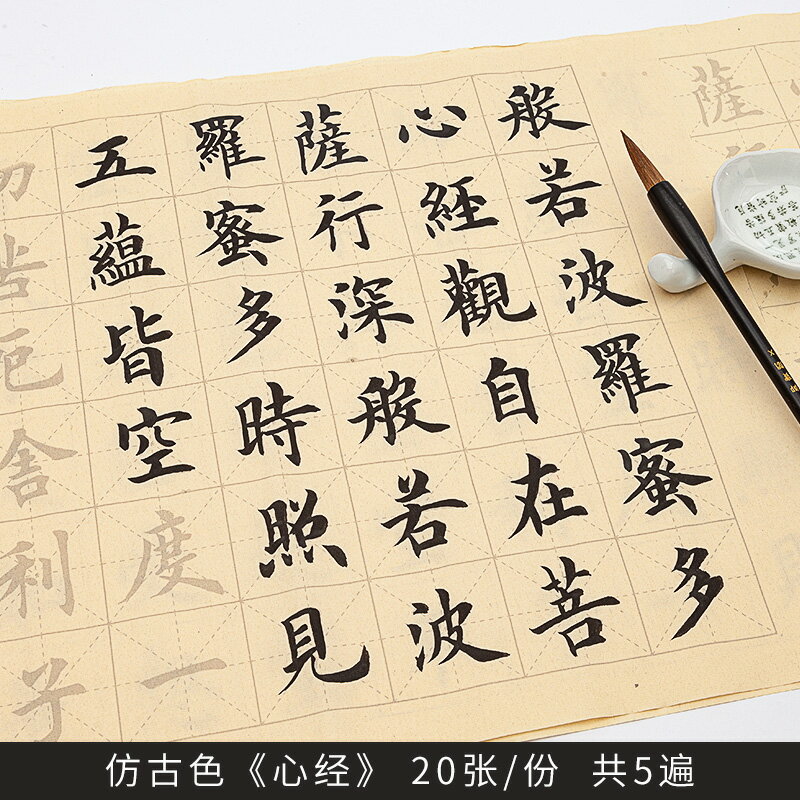 般若波羅蜜多
心經觀自在菩
薩行深般若波
羅蜜多時照見
五蘊皆空度一
切苦厄舍利子
薩
仿古色《心经》 20张/份 共5遍